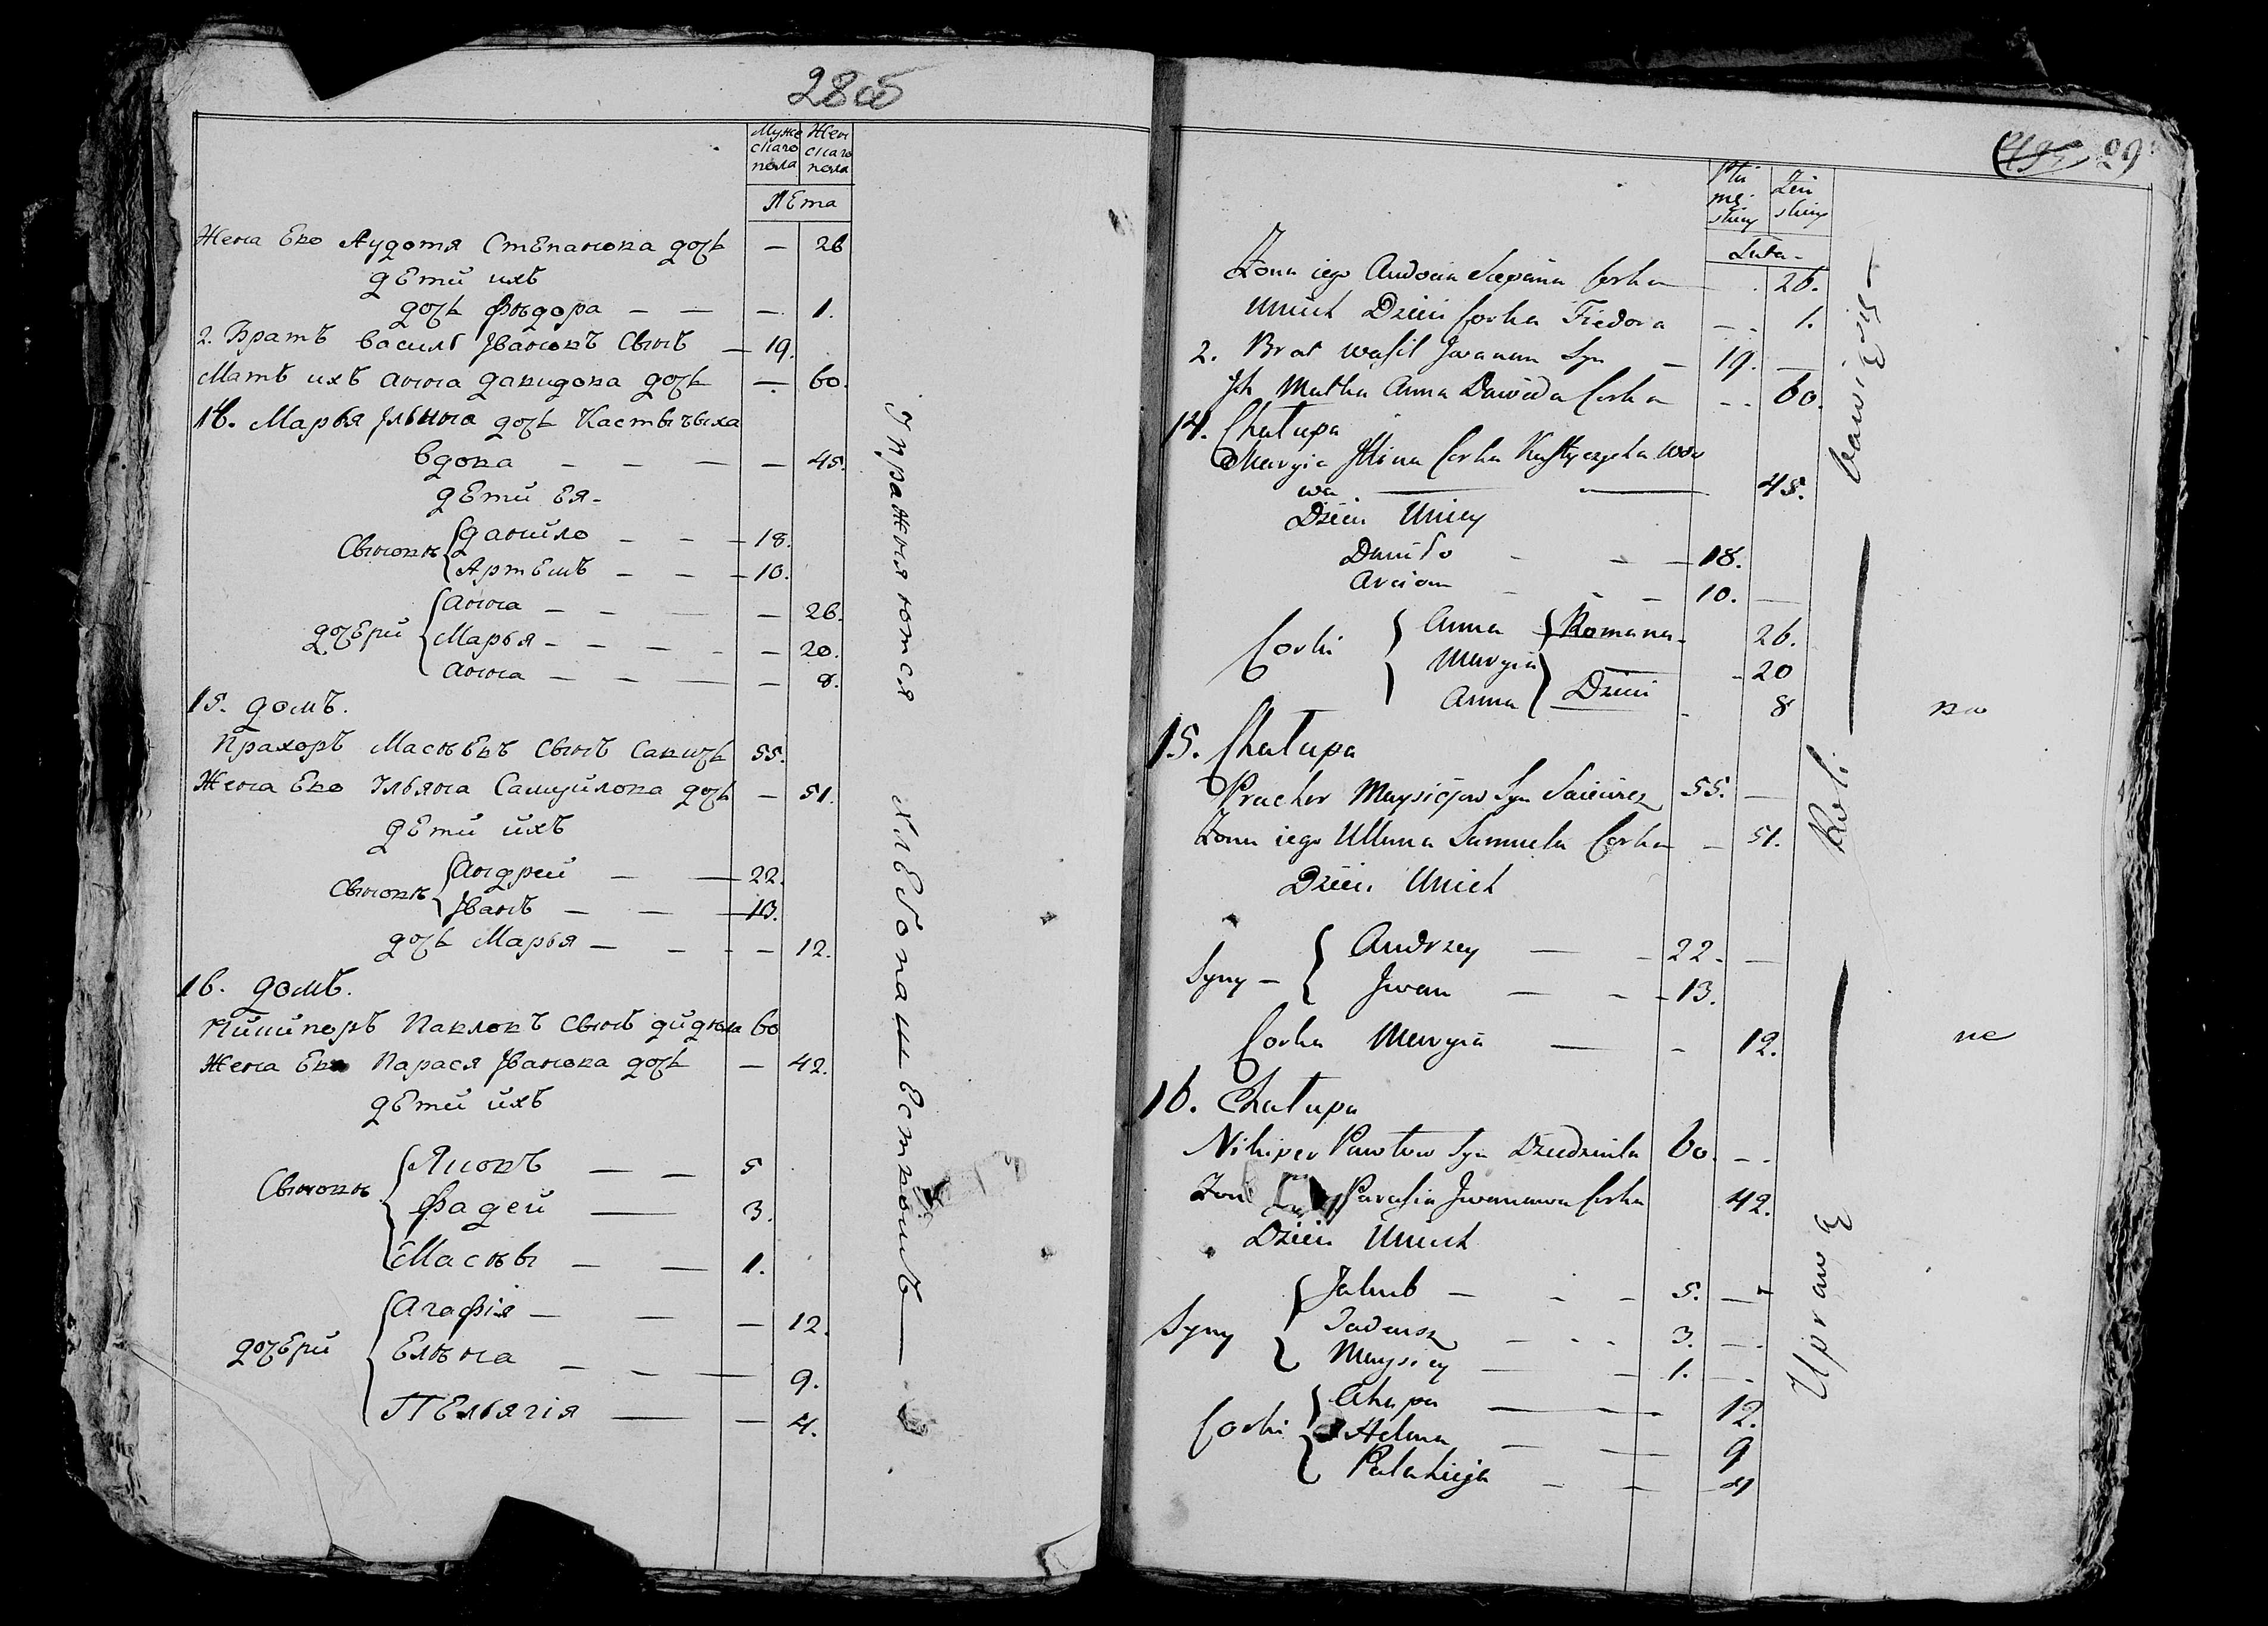 28 об
Муже Жен
скаго скаго
пола пола
Лета
Жена Ево Аудотя Степанова дочь — 26
дети ихъ
дочь Фѣдора — — — 1.
2. Братъ василь Jвановъ Сынъ — 19.
Мать ихъ анна давидова дочь — 60.
14. Марья Jльина дочь Кастычыха
вдова — — — — 45.
дети Ея-
Сыновѣ данило — — — 18.
Артемъ — — — 10.
дочери анна — — — — 26.
Марья — — — — — 20.
анна — — — — 8.
15. домъ.
Прахоръ Масѣевъ Сынъ Савичь 55.
Жена Ево Ульяна Самуйлова дочь — 51.
дети ихъ
Сыновѣ андрей — — 22.
Jванъ — — — 13.
дочь Марья — — — — 12.
16. домъ.
Ничипоръ Павловъ Сынъ дидюла 60
Жена Ево Парася Jванова дочь — 42.
дети ихъ
Сыновѣ Яковъ — — 5
Фадей — 3.
Масѣй — — 1.
дочери агафія — — — 12.
Елѣна — — — 9.
Пельягія — — 4.
Упражняются хлебопашествомъ —
29
Płci
mę-
skiey
Żeń
skiey
Lata-
Żona iego Audocia Stepana Corka — . 26.
Unich Dzieci Corka Fiedora — . 1.
2. Brat Wasil Jwanow Syn — 19. —
Jch Matka Anna Dawida Corka - - 60.
14. Chałupa
Maryia Jllina Corka Kastyczycha wdo
wa — — 45.
Dzieci Uniey
Daniło - - — 18.
Arciom - - — 10. —
Corki Anna Romana- 26.
Maryia - 20
Anna Dzieci - 8
15. Chałupa
Prachor Maysiejow Syn Sawicz 55. —
Żona iego Ullana Samuela Corka — 51.
Dzieci Unich
Syny — Andrzey — - 22- —
Jwan — - - 13.
Corka Maryia — - 12.
16. Chałupa
Nikiper Pawłow Syn Dziedziula 60. - -
Żona Parasia Jwanawa Corka 42.
Dzieci Unich
Syny Jakub — - - 5. —
Tadeusz — - - 3. — .
Maysiey — - 1. — .
Corki Ahapa — — 12.
Helena — — — 9
Palahieja - — - 4
Uprawę — Roli — bawię się —